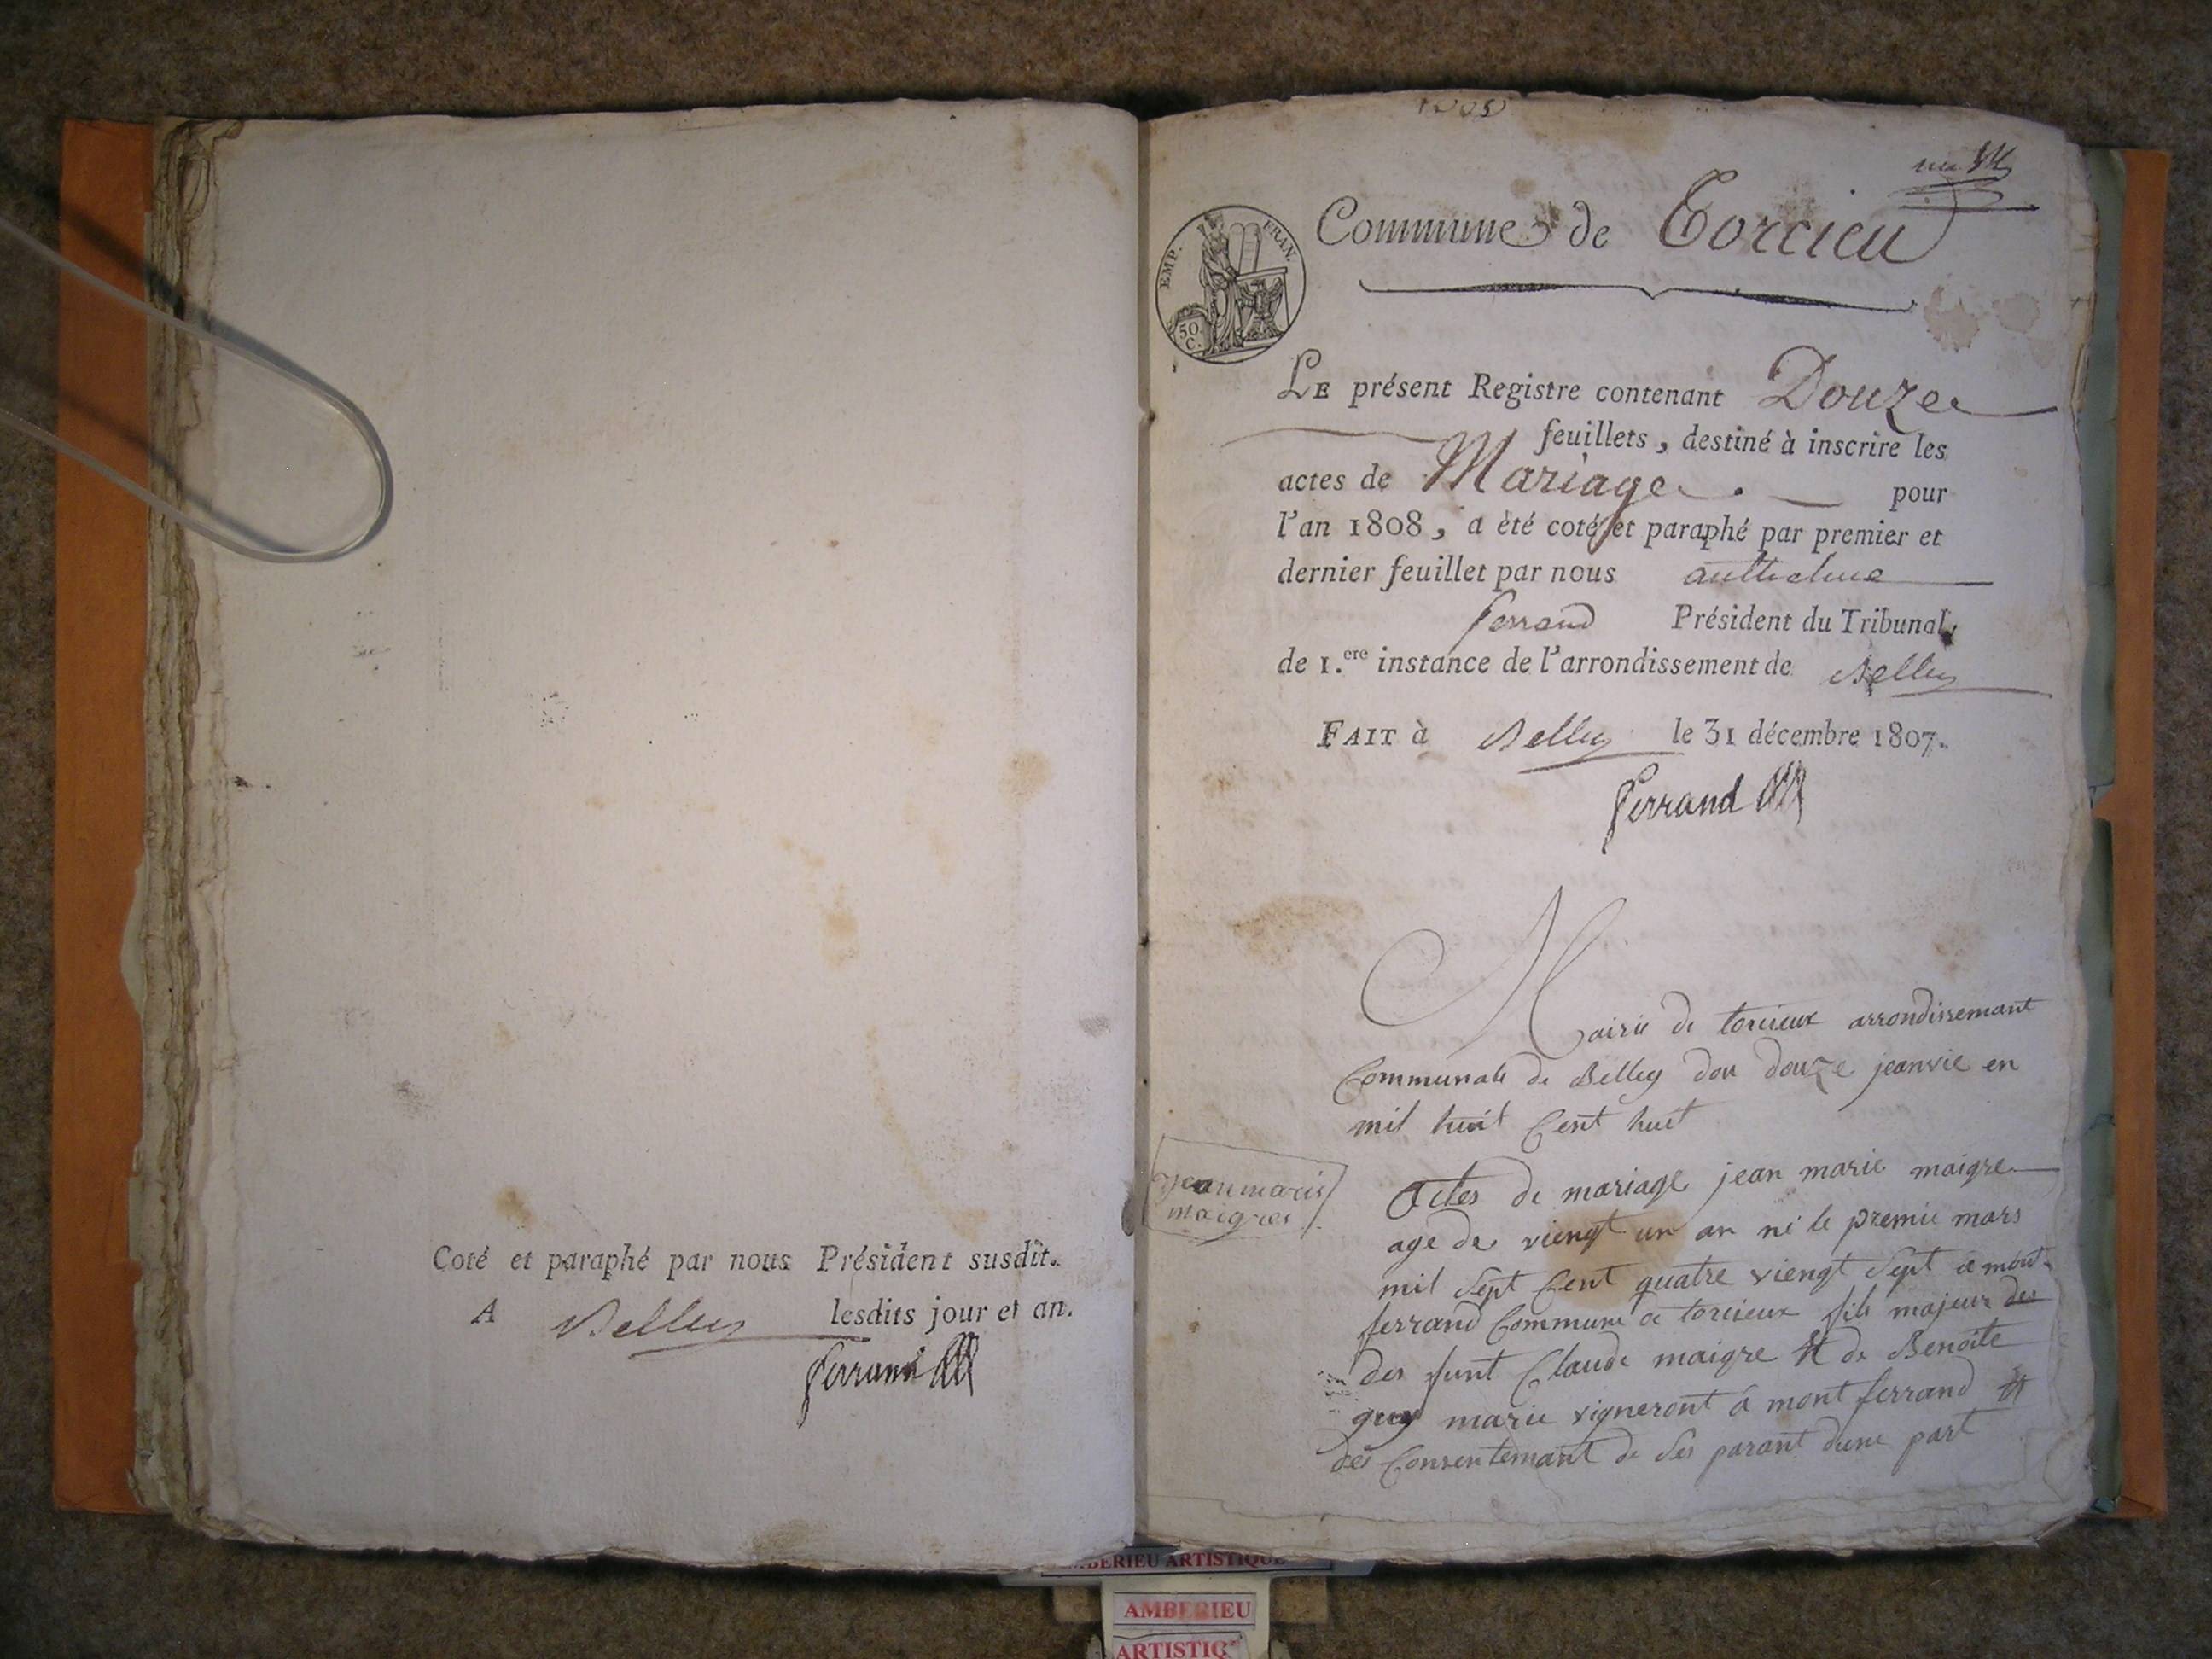 Coté et paraphé par nous Président susdit.
A Belley lesdits jour et an.
Ferrand
1808
Commune de Torcieu
EMP. FRAN.
50 C.
LE présent Registre contenant Douze
feuillets, destiné à inscrire les
actes de Mariage. pour
l'an 1808, a été coté et paraphé par premier et
dernier feuillet par nous anthelme
ferrand Président du Tribunal
de 1.ere instance de l'arrondissement de Belley
FAIT à Belley le 31 décembre 1807.
Ferrand
Mairie de torcieux arrondissemant
Communale de Belley dou douze jeanvie en
mil huit Cent huit
jean marie
maigres
Actes de mariage jean marie maigre
age de viengt un an ni le premie mars
mil sept Cent quatre viengt sept a mont
ferrand Commune a torcieux fils majeur des
des funt Claude maigre et de Benoite
guy marie vigneront á mont ferrand et
des Consentemant de ses parant dune part
AMBERIEU ARTISTIQUE
AMBERIEU
ARTISTIQ